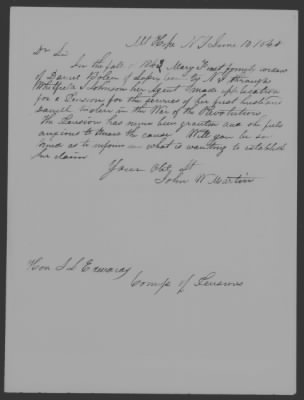 Mt Hope N J June 10 1844
Dr Sir
In the fall of 1842 Mary Frost formerly widow
of Daniel Bolen of County N J through
Whitfield S Johnson her Agent made application
for a Pension for the services of her first husband
Daniel Bolen in the War of the Revolution
The Pension has never been granted and she feels
anxious to know the cause Will you be so
kind as to inform me what is wanting to establish
her claim
Yours Obt St
John W Martin
Hon J L Edwards
Comr of Pensions